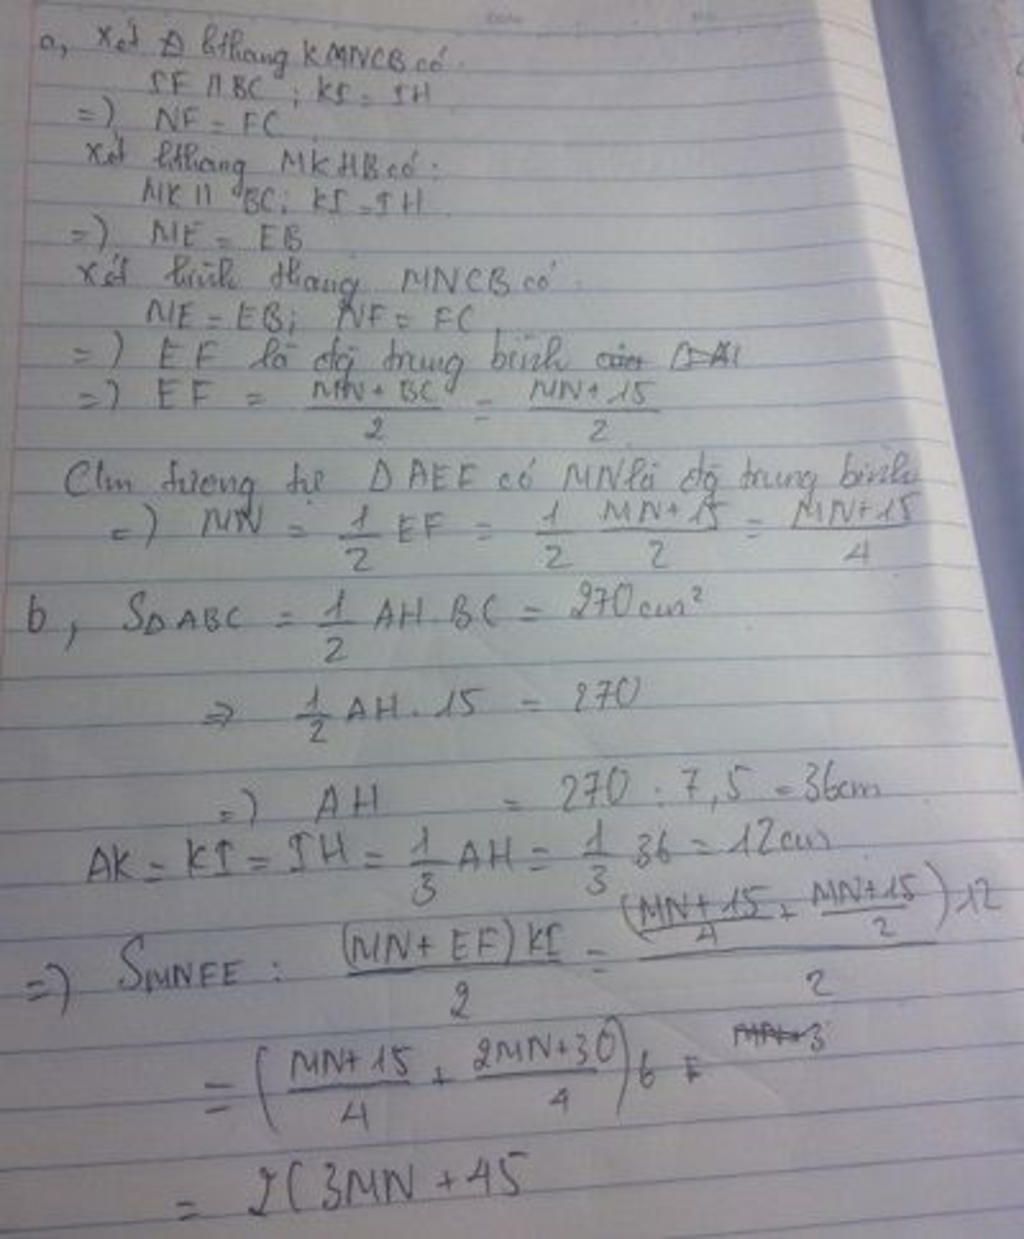 a, Xét Δ hthang KMNCB có
IF // BC ; KI = IH
=) NF = FC
Xét hthang MKHB có:
MK // BC; KI = IH
=) ME = EB
Xét hình thang MNCB có
ME = EB; NF = FC
=) EF là đg trung bình của
=) EF = MN + BC / 2 = MN + 15 / 2
Cm tương tự Δ AEF có MN là đg trung bình
=) MN = 1/2 EF = 1/2 MN + 15 / 2 = MN + 15 / 4
b, SΔABC = 1/2 AH . BC = 270 cm²
=> 1/2 AH . 15 = 270
=) AH = 270 : 7,5 = 36cm
AK = KI = IH = 1/3 AH = 1/3 36 = 12cm
=) SMNFE : (MN + EF) KI / 2 = (MN + 15 / 4 + MN + 15 / 2) 12 / 2
= (MN + 15 / 4 + 2MN + 30 / 4) 6 =
= 2(3MN + 45